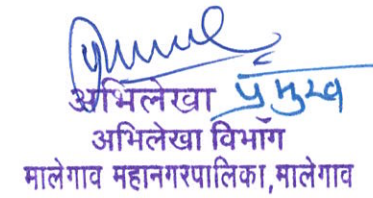 अभिलेखा प्रमुख
अभिलेखा विभाग
मालेगाव महानगरपालिका,मालेगाव